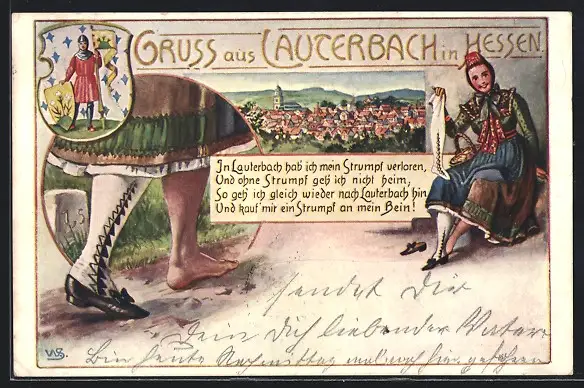 GRUSS aus LAUTERBACH in HESSEN.
In Lauterbach hab ich mein Strumpf verloren,
Und ohne Strumpf geh ich nicht heim,
So geh ich gleich wieder nach Lauterbach hin
Und kauf mir ein Strumpf an mein Bein!
1.5
sendet Dir
Dein Dich liebender Vater
Bin heute Nachmittag mal hier
WB.